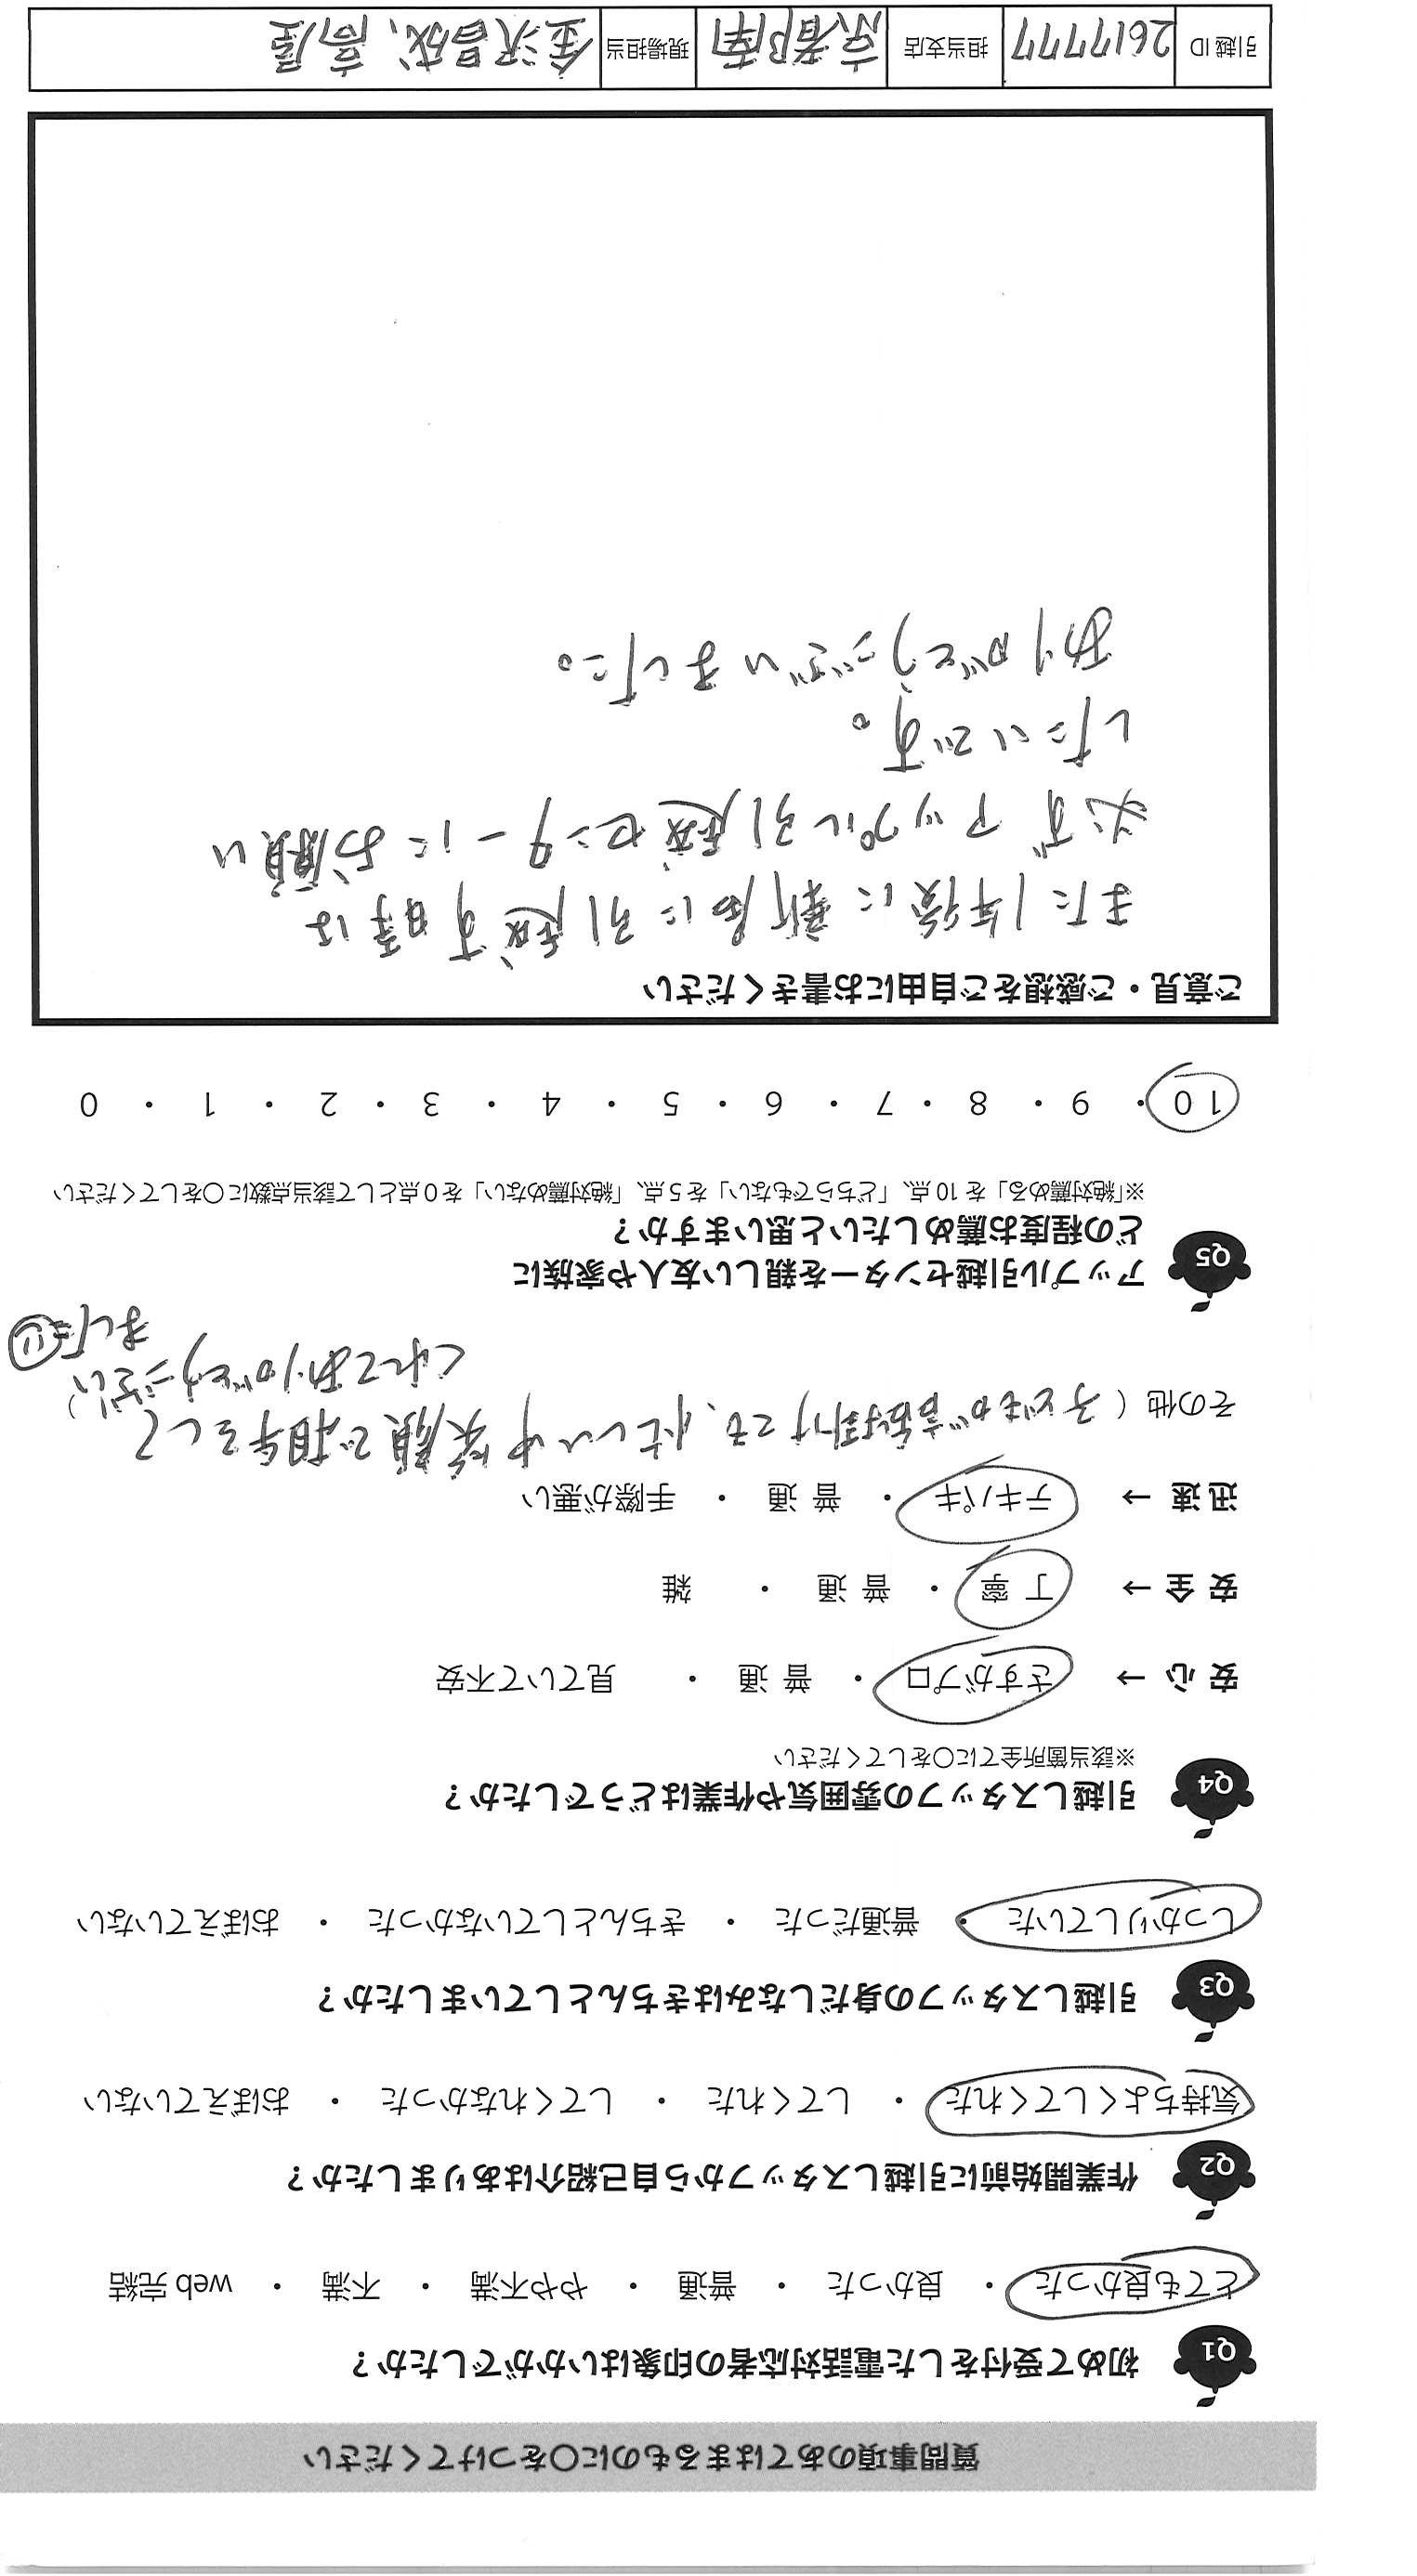 質問事項のあてはまるものに〇をつけてください
Q1 初めて受付をした電話対応者の印象はいかがでしたか？
とても良かった ・ 良かった ・ 普通 ・ やや不満 ・ 不満 ・ web 完結
Q2 作業開始前に引越しスタッフから自己紹介はありましたか？
気持ちよくしてくれた ・ してくれた ・ してくれなかった ・ おぼえていない
Q3 引越しスタッフの身だしなみはきちんとしていましたか？
しっかりしていた ・ 普通だった ・ きちんとしていなかった ・ おぼえていない
Q4 引越しスタッフの雰囲気や作業はどうでしたか？
※該当箇所全てに〇をしてください
安 心 → さすがプロ ・ 普 通 ・ 見ていて不安
安 全 → 丁 寧 ・ 普 通 ・ 雑
迅 速 → テキパキ ・ 普 通 ・ 手際が悪い
その他 ( 子どもが話掛けても、忙しい中笑顔で相手をして
くれてありがとうござい )
ました
Q5 アップル引越センターを親しい友人や家族に
どの程度お薦めしたいと思いますか？
※「絶対薦める」を 10 点、「どちらでもない」を 5 点、「絶対薦めない」を 0 点として該当点数に〇をしてください
10 ・ 9 ・ 8 ・ 7 ・ 6 ・ 5 ・ 4 ・ 3 ・ 2 ・ 1 ・ 0
ご意見・ご感想をご自由にお書きください
また1年後に新居に引越す時は
必ずアップル引越センターにお願い
したいです。
ありがとうございました。
引越 ID 2617777 担当支店 京都南 現場担当 金沢昌成、高屋